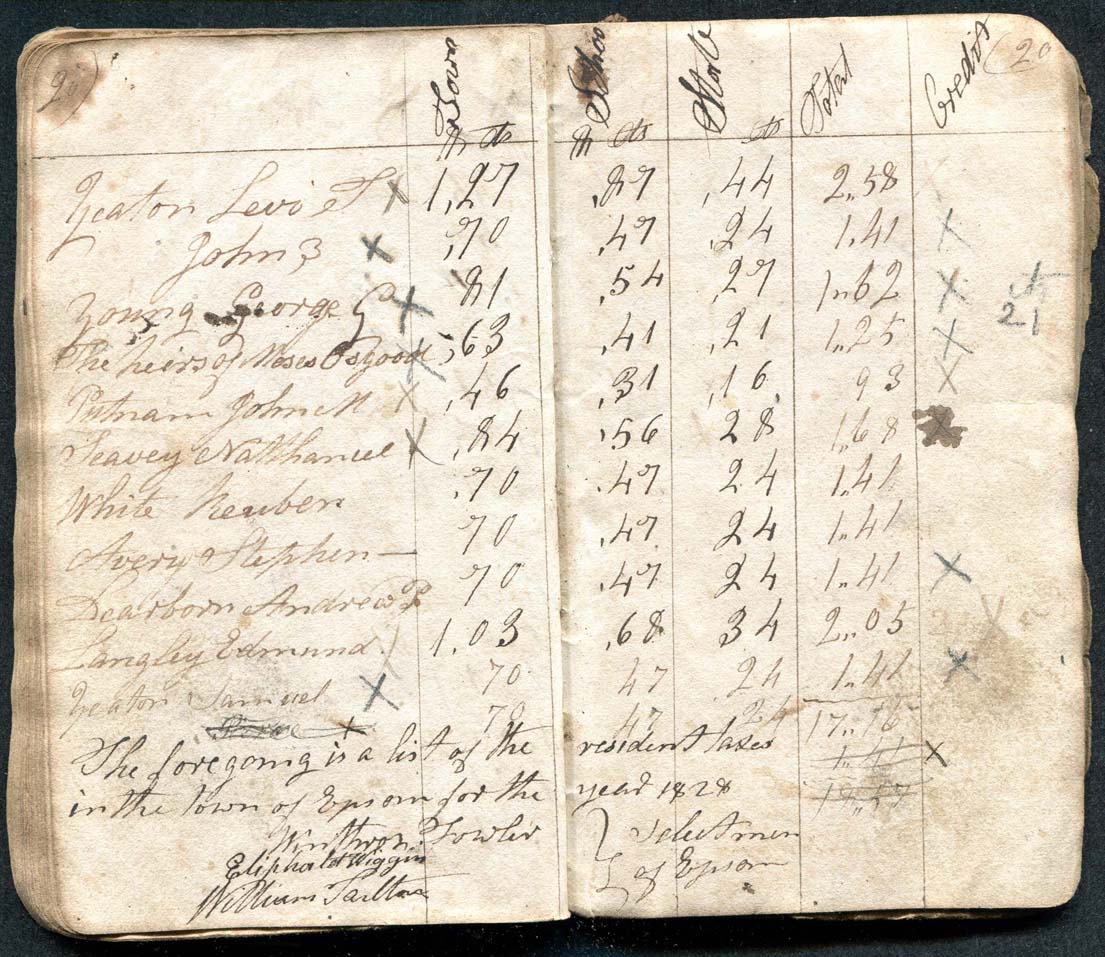 20) (20
Town Schoo State Total Credit
$ cts $ cts cts
Yeaton Levi T X 1,27 ,87 ,44 2.58
" John 3 X ,70 ,47 ,24 1.41 X
Young George X 81 ,54 ,27 1"62 X cts
The heirs of Moses Osgood X ,63 ,41 ,21 1.25 X 21
Putnam John M X ,46 ,31 ,16 93 X
Seavey Nathaniel X ,84 ,56 28 1"68 X
White Reuben ,70 ,47 24 1"41
Avery Stephen — 70 ,47 24 1"41
Dearborn Andrew P 70 ,47 24 1"41 X
Langley Edmund 1.03 ,68 34 2"05
Yeaton Samuel X 70 47 24 1"41 X
X 70 47 24 17"16
The foregoing is a list of the resident taxes 1.41 X
in the town of Epsom for the year 1828
Winthrop Fowler } Selectmen
Eliphalet Wiggin } of Epsom
William Tarlton